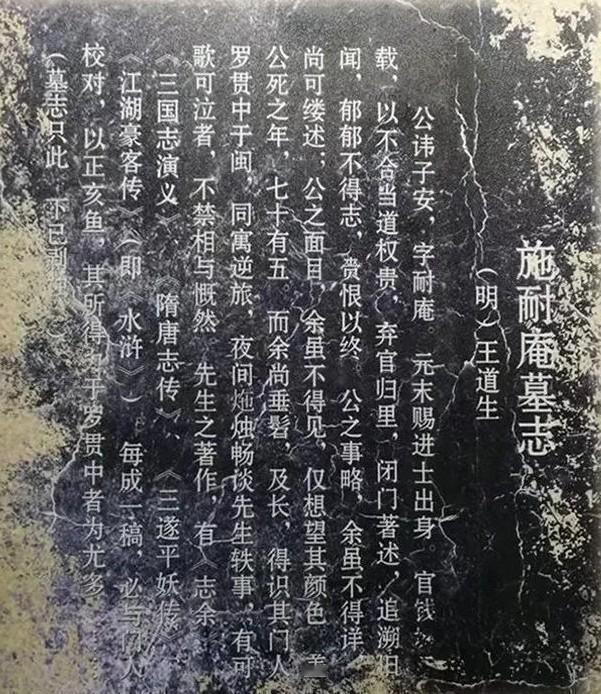 施耐庵墓志
(明)王道生
公讳子安,字耐庵。元末赐进士出身。官钱
载,以不合当道权贵,弃官归里,闭门著述,追溯旧
闻,郁郁不得志,赍恨以终。公之事略,余虽不得详,
尚可缕述;公之面目,余虽不得见,仅想望其颜色
公死之年,七十有五。而余尚垂髫,及长,得识其门人
罗贯中于闽,同寓逆旅,夜间炧烛畅谈先生轶事,有可
歌可泣者,不禁相与慨然。先生之著作,有《志余
《三国志演义》、《隋唐志传》、《三遂平妖传》、
《江湖豪客传》(即《水浒》)。每成一稿,必与门人
校对,以正亥鱼,其所得力于罗贯中者为尤多
(墓志只此 下已剥